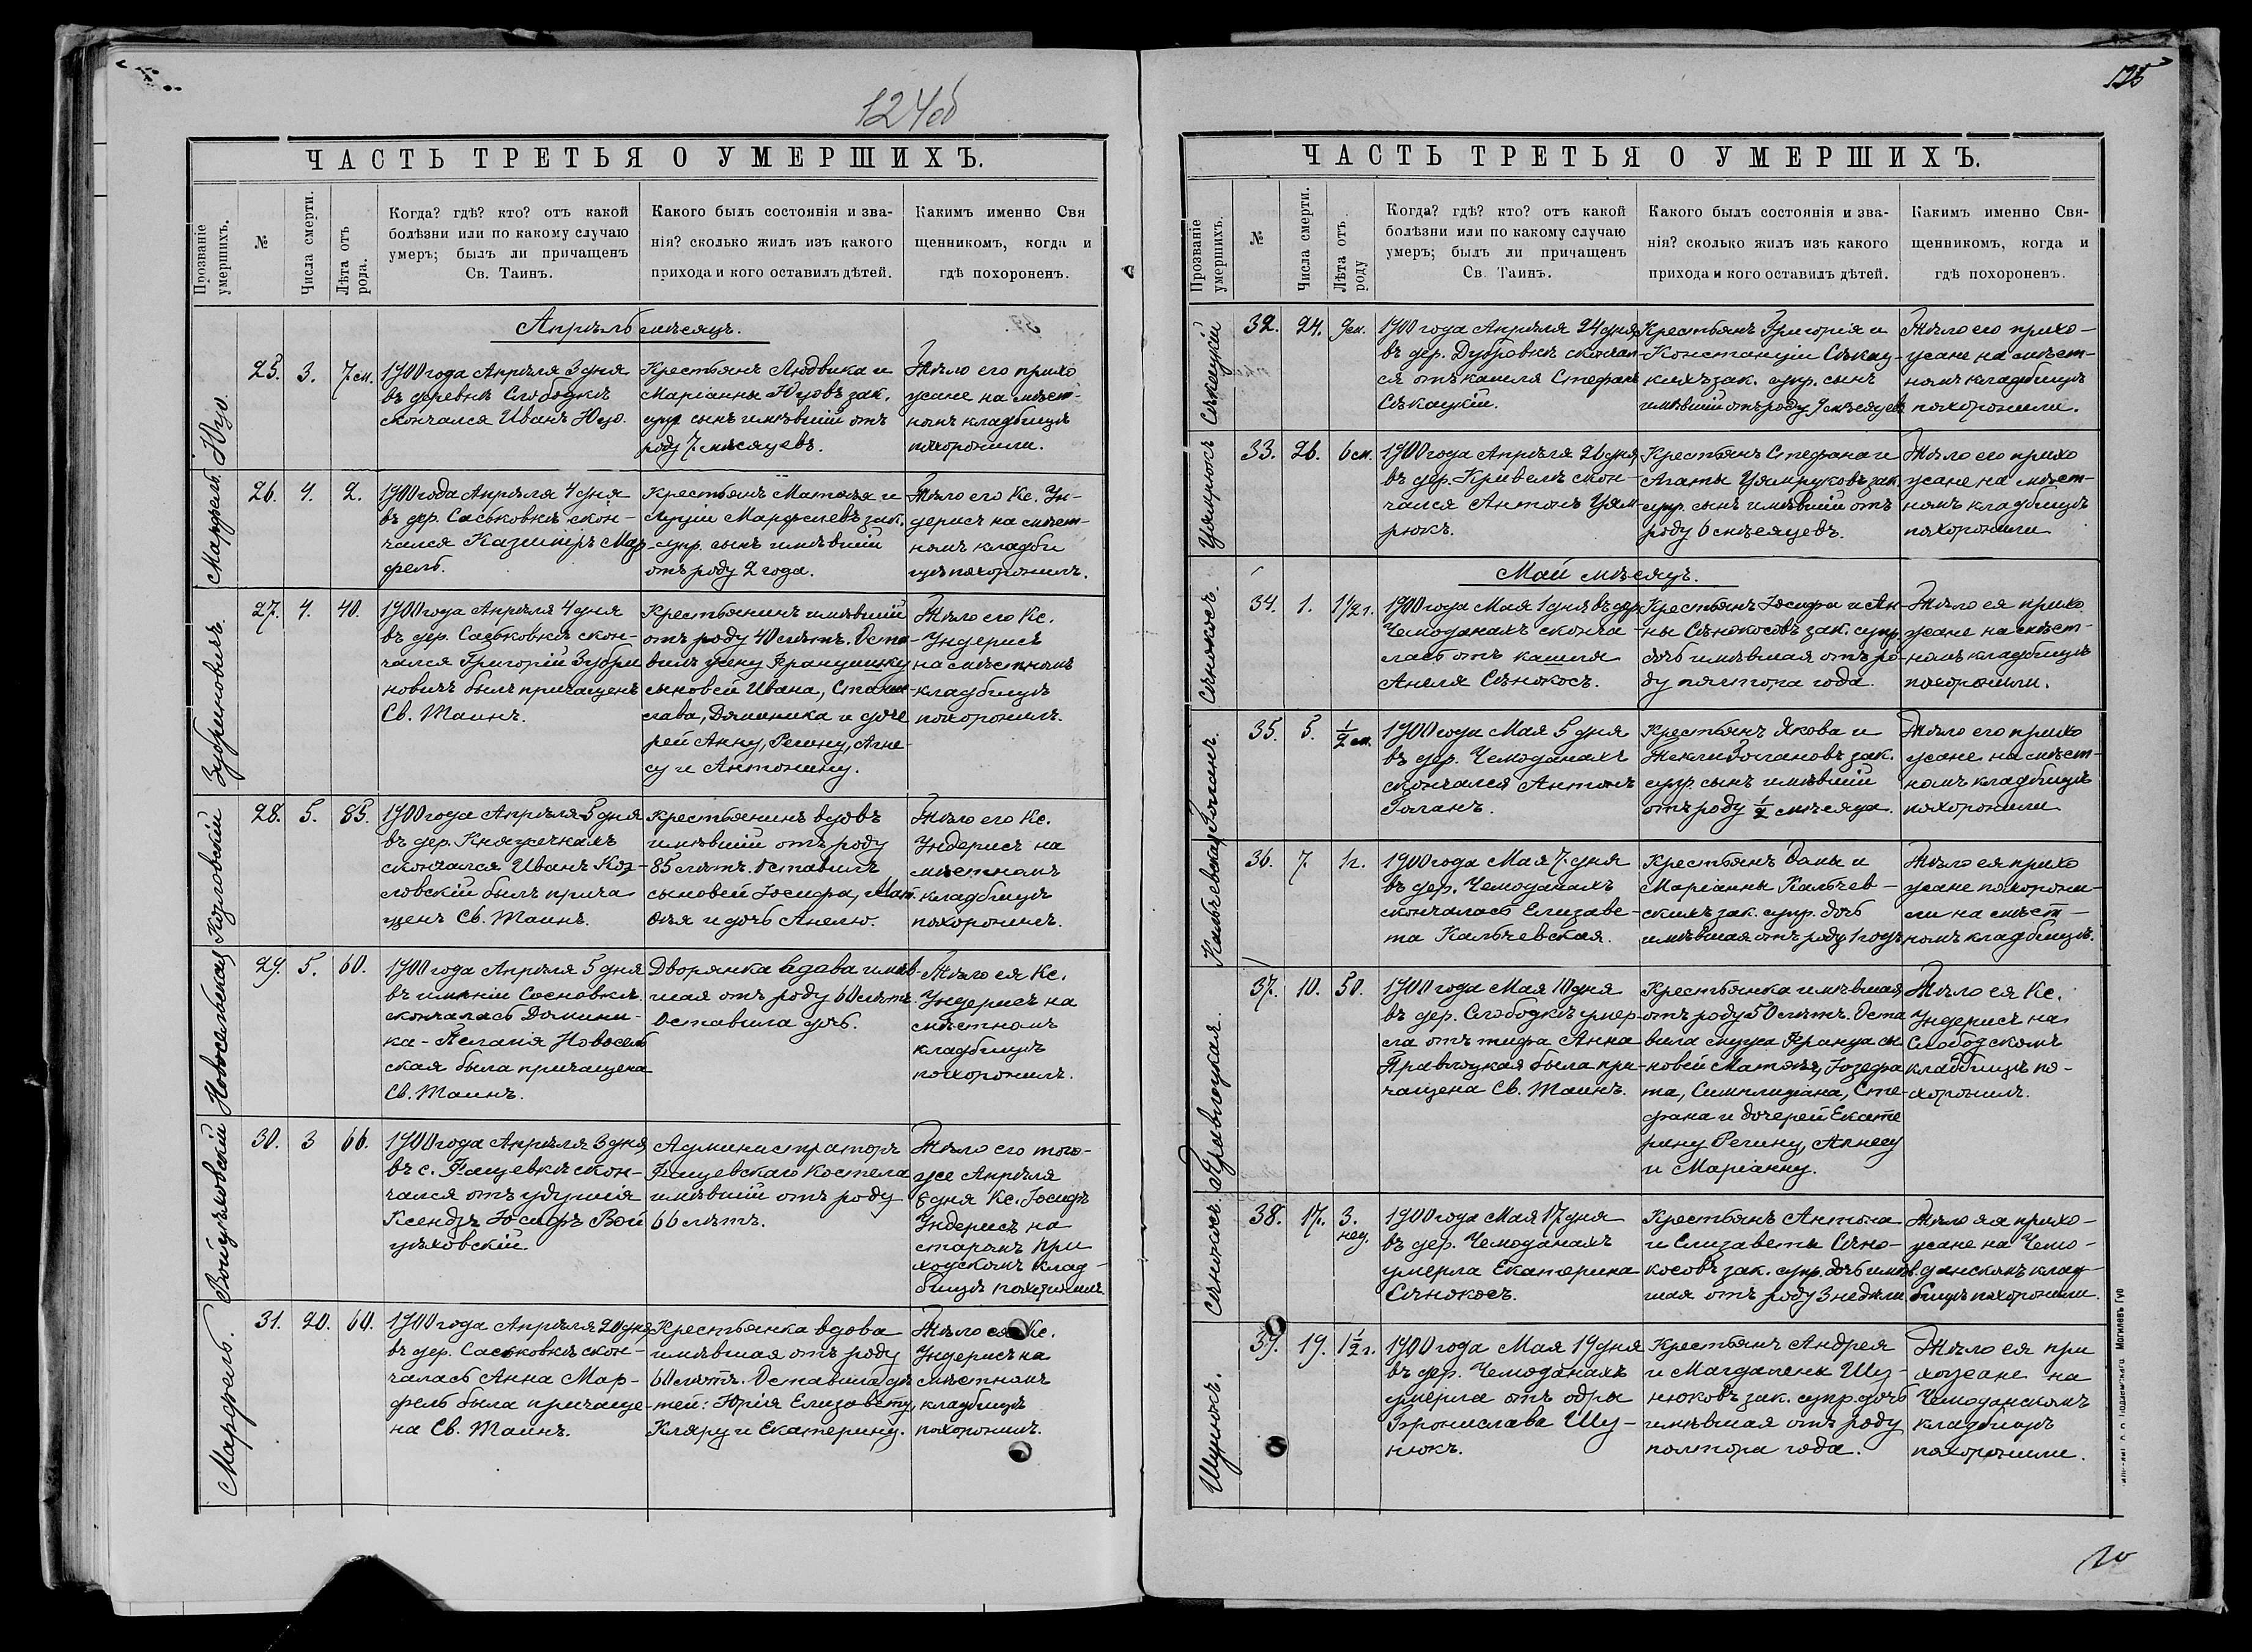 124об
ЧАСТЬ ТРЕТЬЯ О УМЕРШИХЪ.
Прозваніе умершихъ.
№
Числа смерти.
Лѣта отъ рода.
Когда? гдѣ? кто? отъ какой
болѣзни или по какому случаю
умеръ; былъ ли причащенъ
Св. Таинъ.
Какого былъ состоянія и зва-
нія? сколько жилъ изъ какого
прихода и кого оставилъ дѣтей.
Какимъ именно Свя
щенникомъ, когда и
гдѣ похороненъ.
Апрѣль мѣсяцъ.
Юцо.
25. 3. 7 м.
1900 года Апрѣля 3 дня
въ деревнѣ Слободкѣ
скончался Иванъ Юцо.
Крестьянъ Людвика и
Маріанны Юцовъ зак.
супр. сынъ имѣвшій отъ
роду 7 мѣсяцевъ.
Тѣло его прихо
жане на мѣст-
номъ кладбищѣ
похоронили.
Марфель.
26. 4. 2.
1900 года Апрѣля 4 дня
въ дер. Саськовкѣ скон-
чался Казимиръ Мар-
фель.
Крестьянъ Матвѣя и
Луціи Марфелевъ зак.
супр. сынъ имѣвшій
отъ роду 2 года.
Тѣло его Кс. Ун-
дерисъ на мѣст-
номъ кладби
щѣ похоронилъ.
Зубриновичъ.
27. 4. 40.
1900 года Апрѣля 4 дня
въ дер. Саськовкѣ скон-
чался Григорій Зубри
новичъ былъ причащенъ
Св. Таинъ.
Крестьянинъ имѣвшій
отъ роду 40 лѣтъ. Оста
вилъ жену Францишку
сыновей Ивана, Стани-
слава, Доминика и доче
рей Анну, Регину, Агне-
су и Антонину.
Тѣло его Кс.
Ундерисъ
на мѣстномъ
кладбищѣ
похоронилъ.
Козловскій
28. 5. 85.
1900 года Апрѣля 5 дня
въ дер. Княжечкахъ
скончался Иванъ Коз-
ловскій былъ прича
щенъ Св. Таинъ.
Крестьянинъ вдовъ
имѣвшій отъ роду
85 лѣтъ. Оставилъ
сыновей Іосифа, Мат-
ѳѣя и дочь Анелю.
Тѣло его Кс.
Ундерисъ на
мѣстномъ
кладбищѣ
похоронилъ.
Новосельская
29. 5. 60.
1900 года Апрѣля 5 дня
въ имѣніи Сосновкѣ
скончалась Домини-
ка-Пелагія Новосель
ская была причащена
Св. Таинъ.
Дворянка вдова имѣв-
шая отъ роду 60 лѣтъ.
Оставила дочь.
Тѣло ея Кс.
Ундерисъ на
мѣстномъ
кладбищѣ
похоронилъ.
Войцѣховскій
30. 3 66.
1900 года Апрѣля 3 дня
въ с. Фащевкѣ скон-
чался отъ удушія
Ксендзъ Іосифъ Вой
цѣховскій.
Администраторъ
Фащевскаго Костела
имѣвшій отъ роду
66 лѣтъ.
Тѣло его того-
же Апрѣля
6 дня Кс. Іосифъ
Ундерисъ на
старомъ при
ходскомъ клад-
бищѣ похоронилъ.
Марфель.
31. 20. 60.
1900 года Апрѣля 20 дня
въ дер. Саськовкѣ скон-
чалась Анна Мар-
фель была причаще-
на Св. Таинъ.
Крестьянка вдова
имѣвшая отъ роду
60 лѣтъ. Оставила дѣ
тей: Юрія Елизавету,
Кляру и Екатерину.
Тѣло ея Кс.
Ундерисъ на
мѣстномъ
кладбищѣ
похоронилъ.
125
ЧАСТЬ ТРЕТЬЯ О УМЕРШИХЪ.
Прозваніе умершихъ.
№
Числа смерти.
Лѣта отъ роду
Когда? гдѣ? кто? отъ какой
болѣзни или по какому случаю
умеръ; былъ ли причащенъ
Св. Таинъ.
Какого былъ состоянія и зва-
нія? сколько жилъ изъ какого
прихода и кого оставилъ дѣтей.
Какимъ именно Свя-
щенникомъ, когда и
гдѣ похороненъ.
Сѣкацкій
32. 24. 9 м.
1900 года Апрѣля 24 дня
въ дер. Дубровкѣ скончал-
ся отъ кашля Стефанъ
Сѣкацкій.
Крестьянъ Григорія и
Констанціи Сѣкац-
кихъ зак. супр. сынъ
имѣвшій отъ роду 9 мѣсяцевъ
Тѣло его прихо-
жане на мѣст-
номъ кладбищѣ
похоронили.
Цямрюкъ
33. 26. 6 м.
1900 года Апрѣля 26 дня
въ дер. Кривелѣ скон-
чался Антонъ Цям-
рюкъ.
Крестьянъ Стефана и
Агаты Цямруковъ зак.
супр. сынъ имѣвшій отъ
роду 6 мѣсяцевъ.
Тѣло его прихо
жане на мѣст-
номъ кладбищѣ
похоронили
Май мѣсяцъ.
Сѣнокосъ.
34. 1. 1 1/2 г.
1900 года Мая 1 дня въ дер.
Чемоданахъ сконча
лась отъ кашля
Анеля Сѣнокосъ.
Крестьянъ Іосифа и Ан-
ны Сѣнокосовъ зак. супр.
дочь имѣвшая отъ ро-
ду полтора года.
Тѣло ея прихо
жане на мѣст-
номъ кладбищѣ
похоронили.
Гоганъ.
35. 5. 1/2 м.
1900 года Мая 5 дня
въ дер. Чемоданахъ
скончался Антонъ
Гоганъ.
Крестьянъ Якова и
Теклі Гогановъ зак.
супр. сынъ имѣвшій
отъ роду 1/2 мѣсяца.
Тѣло его прихо
жане на мѣст-
номъ кладбищѣ
похоронили
Кальчевская
36. 7. 1 г.
1900 года Мая 7 дня
въ дер. Чемоданахъ
скончалась Елизаве-
та Кальчевская.
Крестьянъ Фамы и
Маріанны Кальчев-
скихъ зак. супр. дочь
имѣвшая отъ роду 1 годъ
Тѣло ея прихо
жане похорони-
ли на мѣст-
номъ кладбищѣ.
Правлоцкая.
37. 10. 50.
1900 года Мая 10 дня
въ дер. Слободкѣ умер-
ла отъ тифа Анна
Правлоцкая была при-
чащена Св. Таинъ.
Крестьянка имѣвшая
отъ роду 50 лѣтъ. Оста
вила мужа Франца сы
новей Матвѣя, Іозефа
та, Симплиціана, Сте-
фана и дочерей Екате
рину Регину, Агнесу
и Маріанну.
Тѣло ея Кс.
Ундерисъ на
Слободскомъ
кладбищѣ по-
хоронилъ.
Сѣнокосъ.
38. 17. 3. нед.
1900 года Мая 17 дня
въ дер. Чемоданахъ
умерла Екатерина
Сѣнокосъ.
Крестьянъ Антона
и Елизаветы Сѣно-
косовъ зак. супр. дочь имѣв-
шая отъ роду 3 недѣли
Тѣло яя прихо-
жане на Чемо-
данскомъ клад-
бищѣ похоронили.
Шунюкъ.
39. 19. 1 1/2 г.
1900 года Мая 19 дня
въ дер. Чемоданахъ
умерла отъ одры
Бронислава Шу-
нюкъ.
Крестьянъ Андрея
и Магдалены Шу-
нюковъ зак. супр. дочь
имѣвшая отъ роду
полтора года.
Тѣло ея при
хожане на
Чемоданскомъ
кладбищѣ
похоронили.